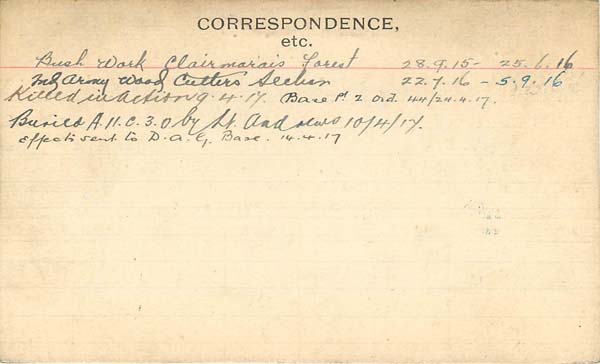 CORRESPONDENCE,
etc.
Bush Work Clairmarais Forest 28.9.15 - 25.6.16
2nd Army Wood Cutters Section 22.7.16 - 5.9.16
Killed in action 9.4.17. Base Pt 2 Ord. 44/24.4.17.
Buried A.11.C.3.0 by Lt. Andrews 10/4/17.
effects sent to D.A.G. Base. 14.4.17